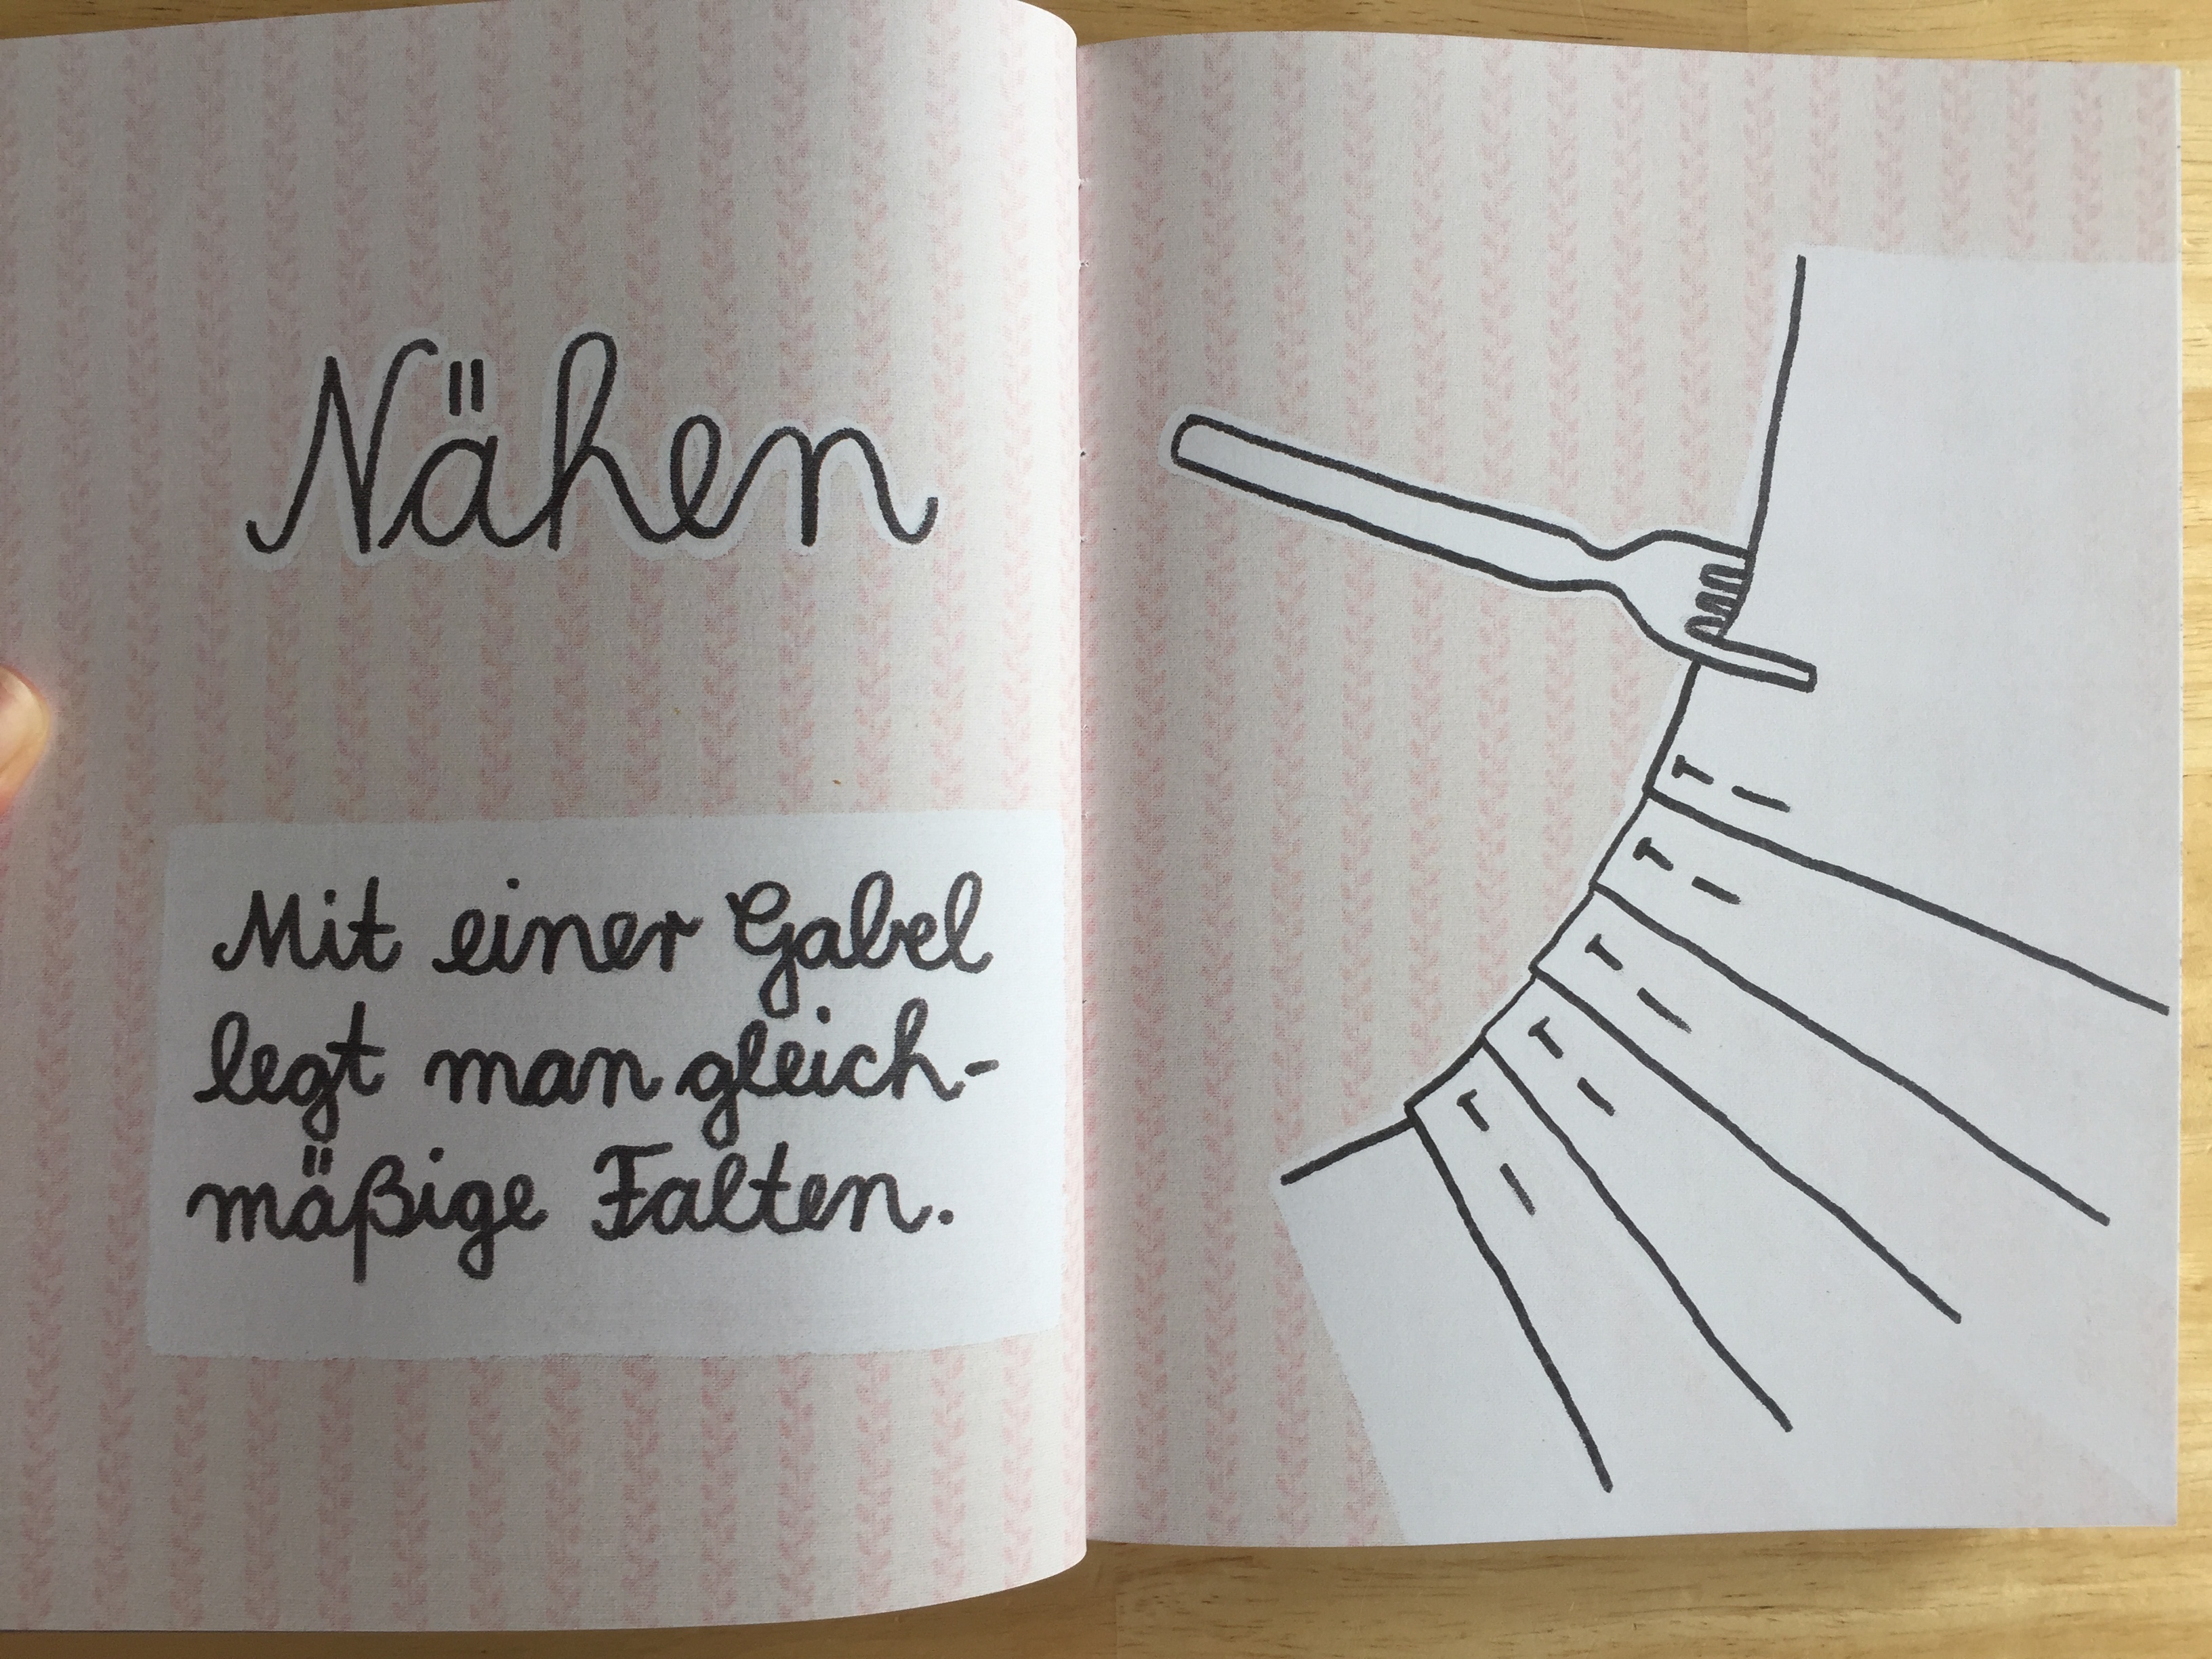 Nähen
Mit einer Gabel
legt man gleich-
mäßige Falten.